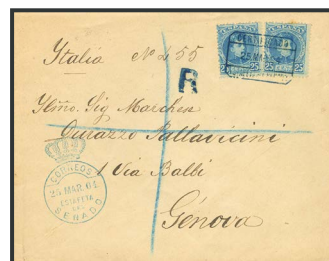 Italia Nº 4 55
R
25 25
Yllmo. Sig Marches
Durazzo Pallavicini
1 Via Balbi
Génova
CORREOS
25 MAR. 04
ESTAFETA
DEL
SENADO